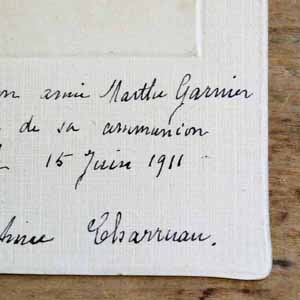 on amie Marthe Garnier
de sa communion
15 Juin 1911
Charruau.